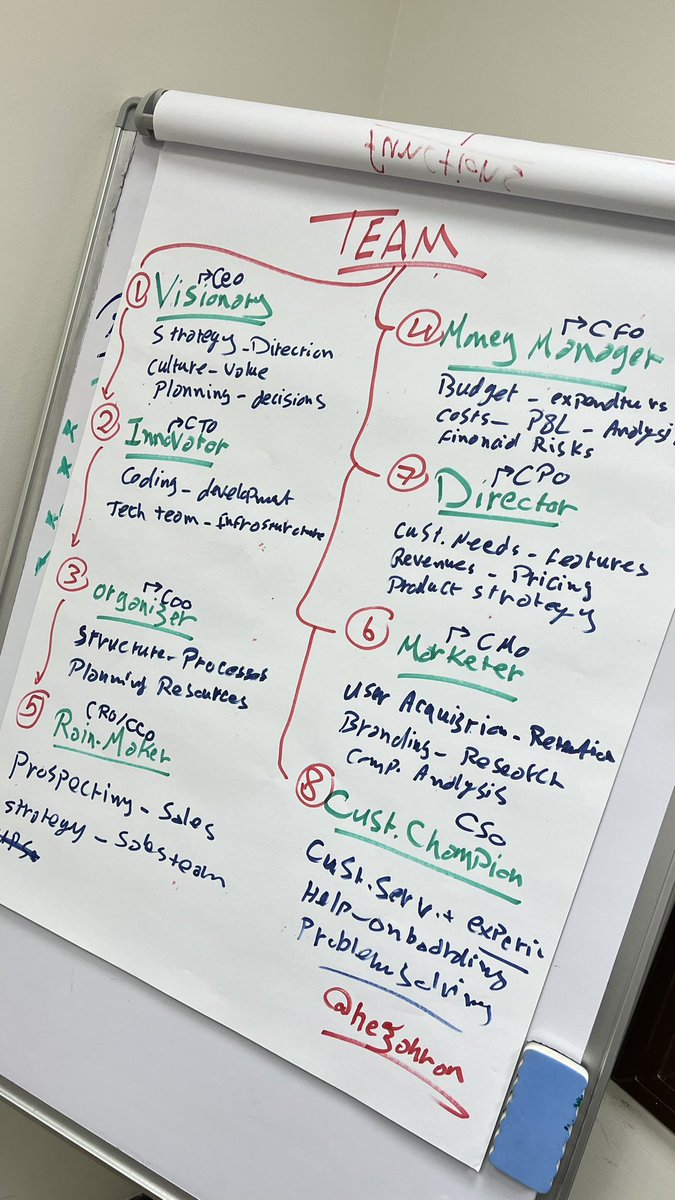 Functions
TEAM
① Visionary ↱ Ceo
Strategy - Direction
Culture - Value
Planning - decisions
② Innovator ↱ CTO
Coding - development
Tech team - Infrostructure
③ Organizer ↱ Coo
Structure - Processes
Planning Resources
⑤ Rain-Maker CRO/CCO
Prospecting - Sales
strategy - Sales team
④ Money Manager ↱ CFO
Budget - expenditurs
Costs - P&L - Analysi
Financial Risks
⑦ Director ↱ CPO
Cust. Needs - Features
Revenues - Pricing
Product strategy
⑥ Marketer ↱ CMO
User Acquisition - Retention
Branding - Research
Comp. Analysis
⑧ Cust. Champion CSO
Cust. Serv. + experi
Help - Onboarding
Problem Solving
@hegohron